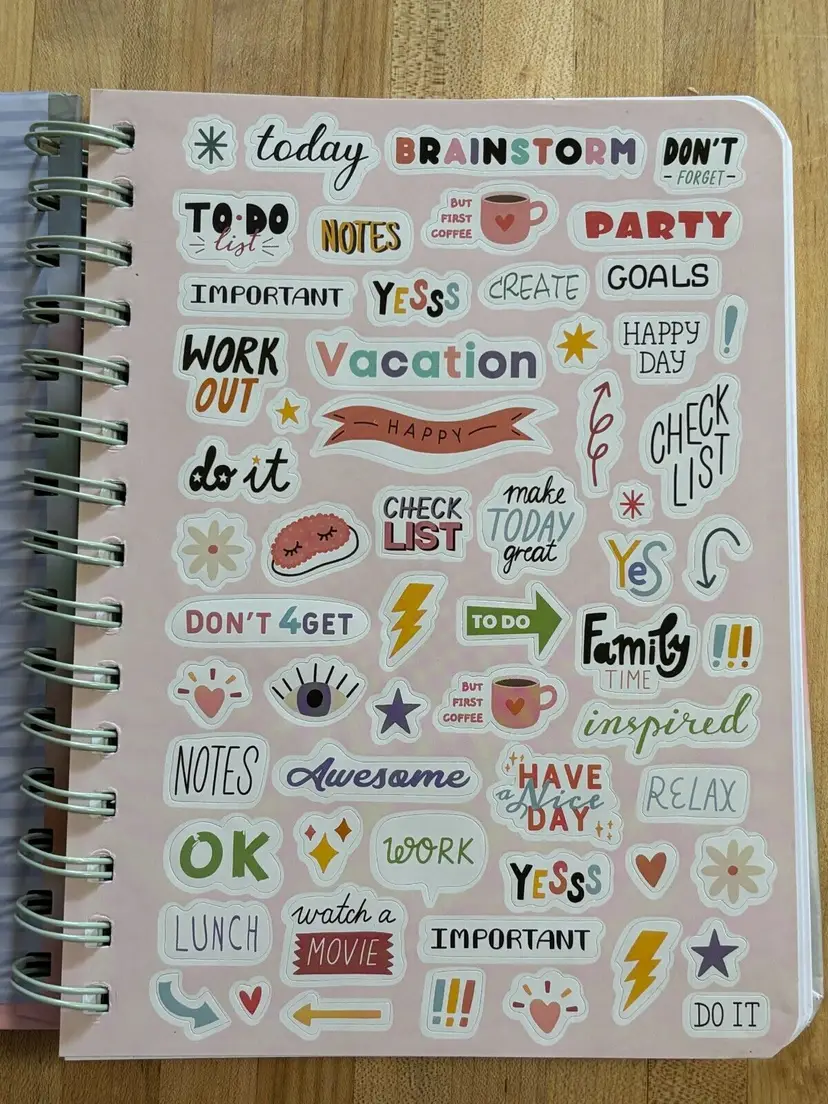 today
BRAINSTORM
DON'T
- FORGET -
TO·DO
list
NOTES
BUT
FIRST
COFFEE
PARTY
IMPORTANT
YESSS
CREATE
GOALS
WORK
OUT
Vacation
HAPPY
DAY
!
HAPPY
CHECK
LIST
do it
CHECK
LIST
make
TODAY
great
YeS
DON'T 4GET
TO DO
Family
TIME
!!!
BUT
FIRST
COFFEE
inspired
NOTES
Awesome
HAVE
a Nice
DAY
RELAX
OK
WORK
YESSS
LUNCH
watch a
MOVIE
IMPORTANT
!!!
DO IT